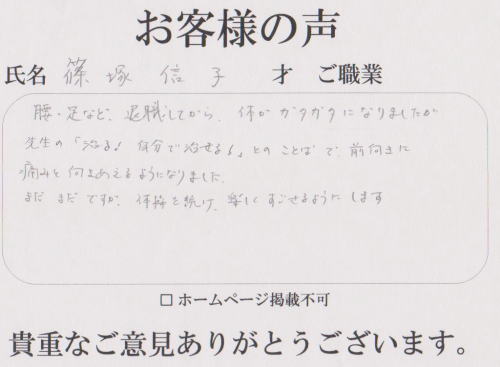 お客様の声
氏名 篠塚 信子 才 ご職業
腰・足など、退職してから、体がガタガタになりましたが
先生の「治る！自分で治せる！」とのことばで、前向きに
痛みと向きあえるようになりました。
まだまだですが、体操を続け、楽しくすごせるようにします
□ ホームページ掲載不可
貴重なご意見ありがとうございます。